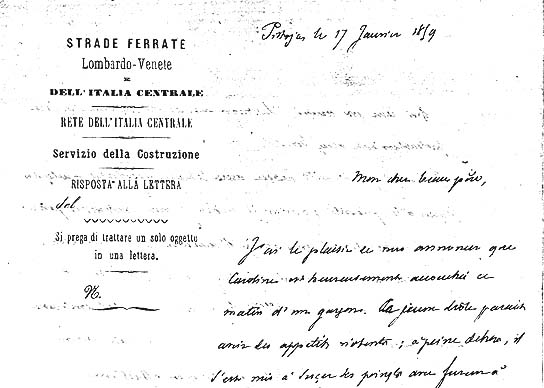 STRADE FERRATE
Lombardo-Venete
E
DELL'ITALIA CENTRALE
RETE DELL'ITALIA CENTRALE
Servizio della Costruzione
RISPOSTA ALLA LETTERA
del
Si prega di trattare un solo oggetto
in una lettera.
N.
le 17 Janvier 1859
Mon cher beau père,
J'ai le plaisir de vous annoncer que
Caroline est heureusement accouchée ce
matin d'un garçon. Ce jeune drôle paraît
avoir des appétits violents ; à peine dehors, il
s'est mis à sucer les poings avec fureur à